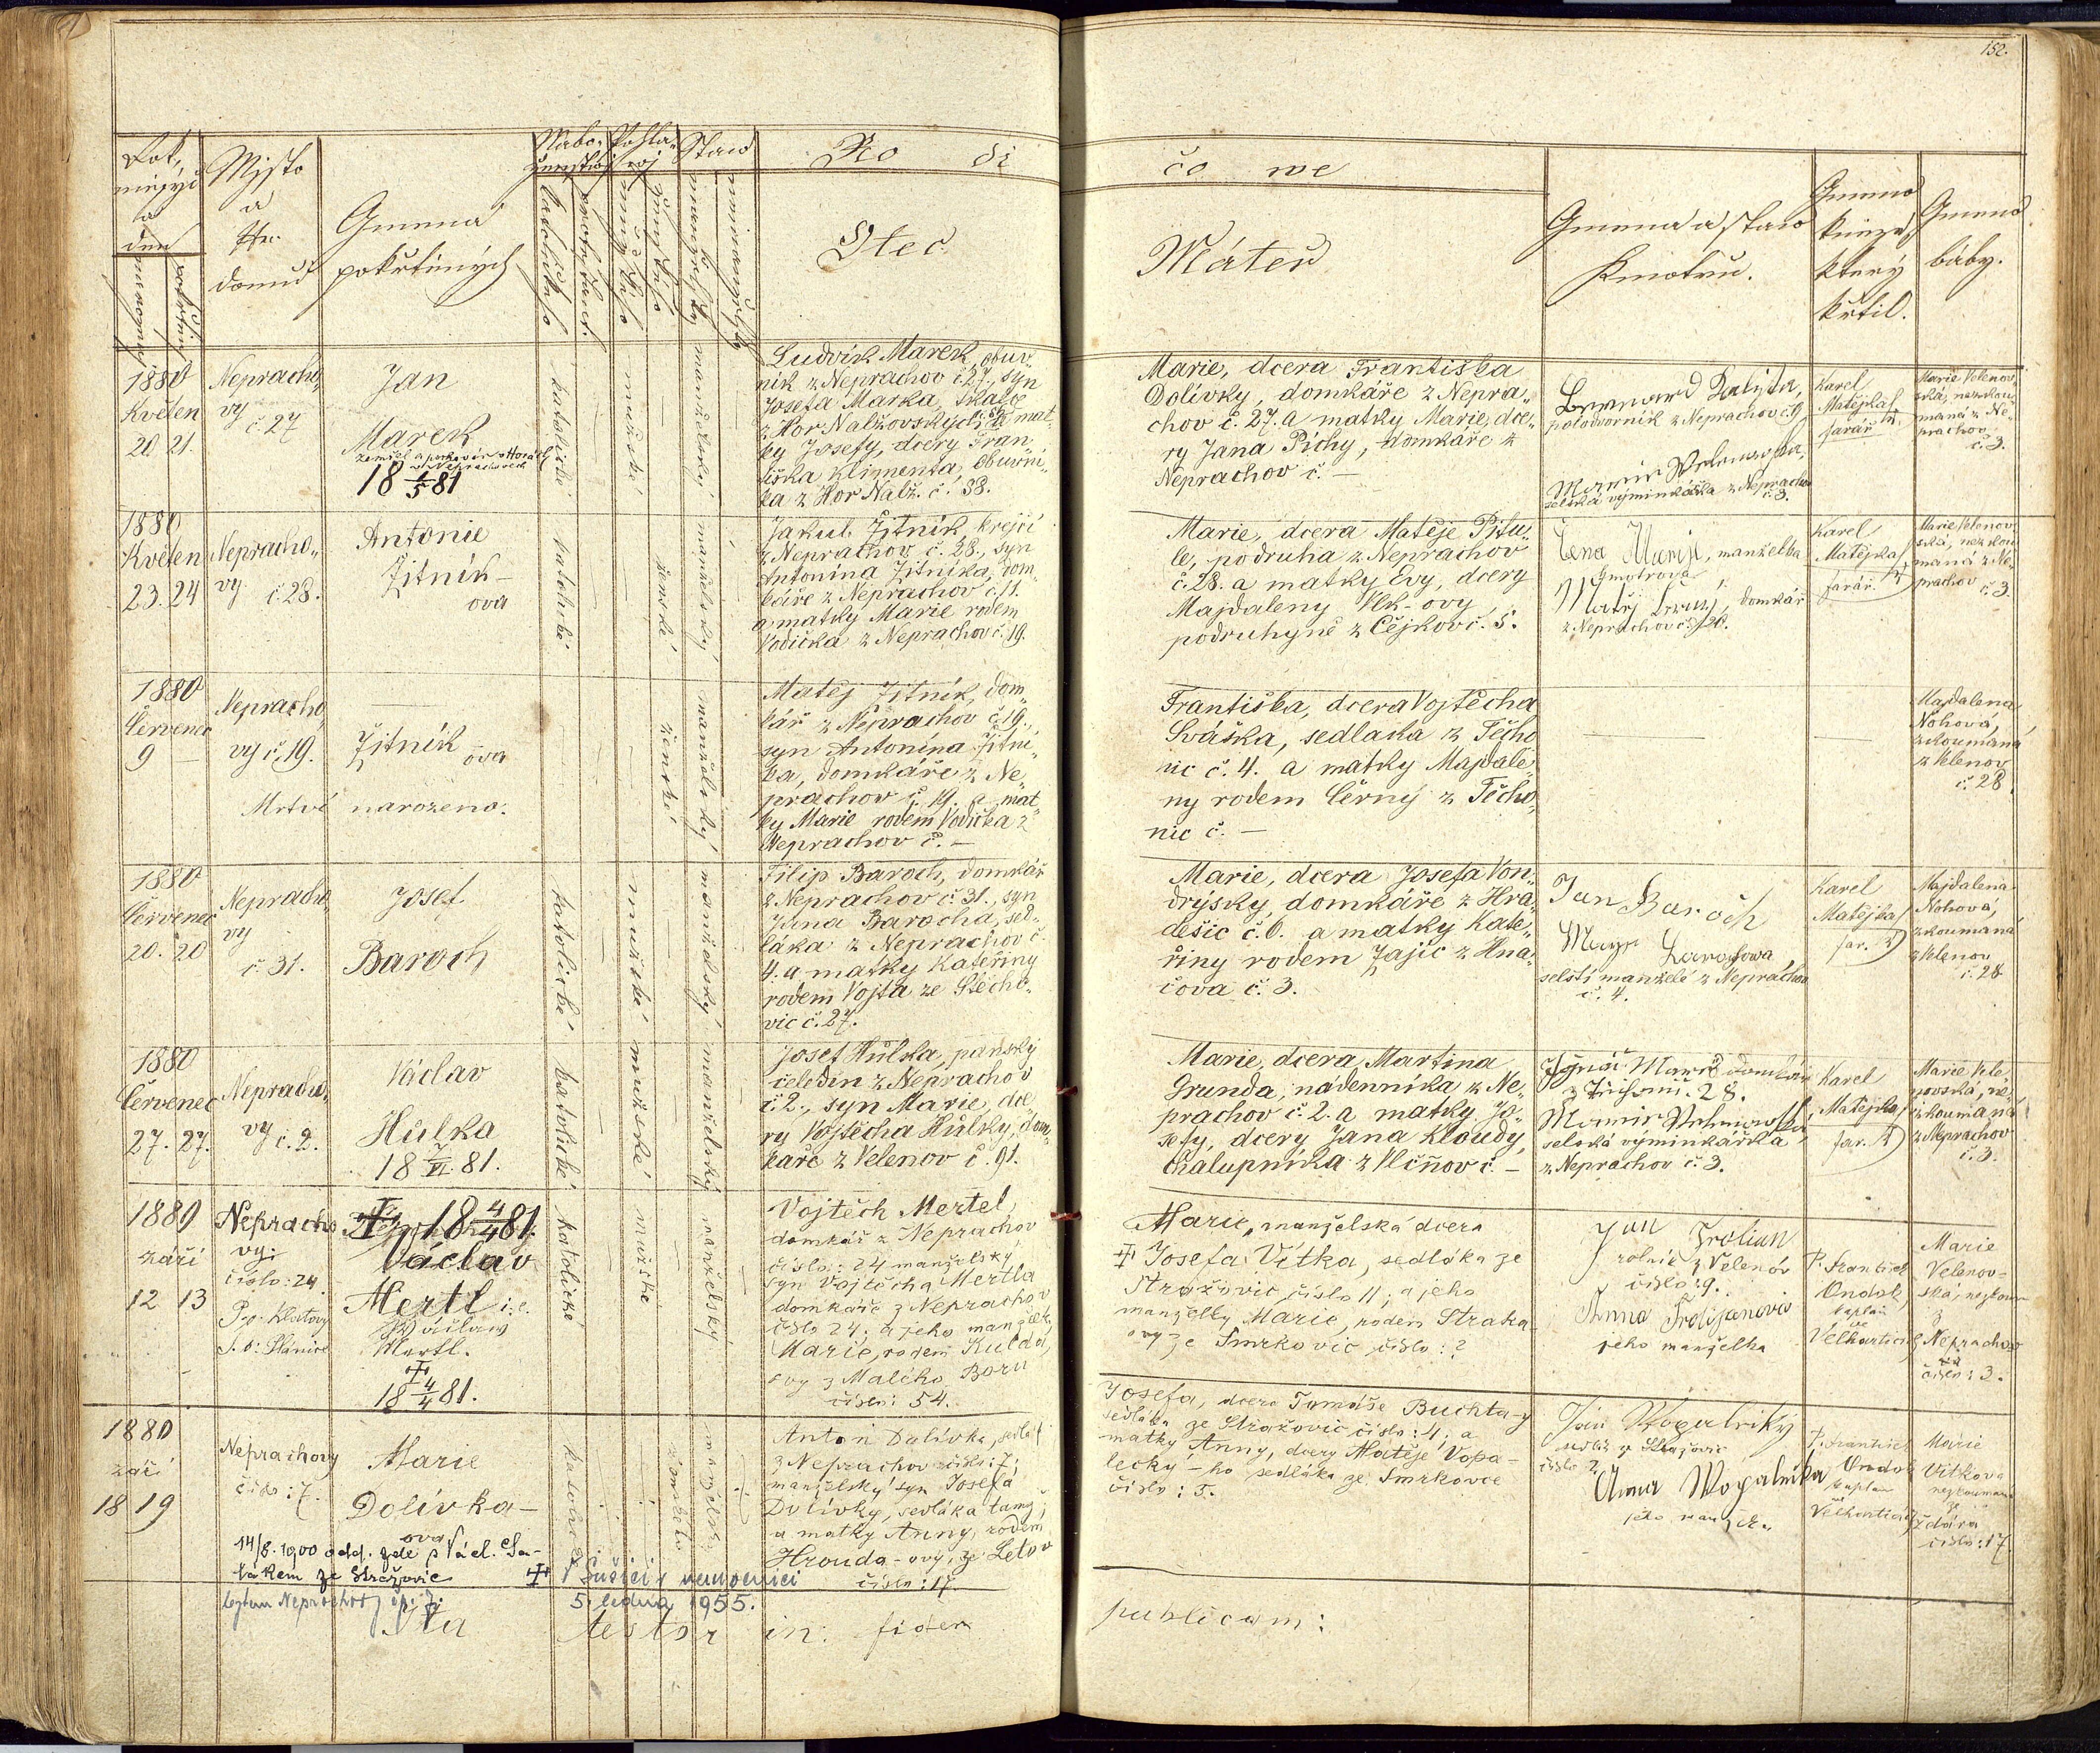 152.
Rok,
měsýc
a
den
Mjsto
a
Nro.
domu
Gmena
pokřtěných
Nábo-
ženstwj
Pohla-
wj
Staw
Ro di
čo we
Otec
Máteř
Gmena a staw
Kmotrů.
Gmeno
kněze,
který
křtil.
Gmeno
báby.
1880
Květen
20. 21.
Nepracho„
vy
č. 27
Jan
Marek
zemřel a pochován v Horách
v Neprachovech
18 5/5 81
katolické
mužské
manželský
Ludvík Marek, obuv„
ník z Neprachov č. 27., syn
Josefa Marka, tkalce
z Hor Nalžovských, a mat„
ky Josefy, dcery Fran„
tiška Klimenta, obuvni„
ka z Hor Nalž. č. 38.
Marie, dcera Františka
Dolívky, domkáře z Nepra„
chov č. 27. a matky Marie, dce„
ry Jana Píchy, domkáře z
Neprachov č. —
Bernard Kalista,
polodvorník z Neprachov č. 9
Marie Velenovska,
selská výminkářka z Neprachov
č. 3.
Karel
Matějka
farář
Marie Velenov„
ská, nezkou„
maná z Ne„
prachov
č. 3.
1880
Květen
23. 24
Nepracho„
vy č. 28.
Antonie
Žitník-
ova
katolické
ženské
manželský
Jakub Žitník, krejčí
z Neprachov č. 28., syn
Antonína Žitníka, dom„
káře z Neprachov č. 11.
a matky Marie rodem
Vodička z Neprachov č. 19.
Marie, dcera Matěje Pitu„
le, podruha z Neprachov
č. 28. a matky Evy, dcery
Majdaleny Vlk-ovy
podruhyně z Čejkov č. 5.
manželka
kmotrova
domkář
z Neprachov č. 28.
Karel
Matějka
farář.
Marie Velenov„
ská, nezkou„
maná z Ne„
prachov č. 3.
1880
Červenec
9 —
Nepracho„
vy č. 19.
Žitník
ova
Mrtvě narozeno.
ženské
manželský
Matěj Žitník, dom„
kář z Neprachov č. 19.,
syn Antonína Žitní„
ka, domkáře z Ne„
prachov č. 19. a mat„
ky Marie rodem Vodička z
Neprachov č. —
Františka, dcera Vojtěcha
Sváška, sedláka z Těcho„
nic č. 4. a matky Majdale„
ny rodem Černý z Těcho„
nic č. —
Majdalena
Nohová,
zkoumaná
z Velenov
č. 28.
1880
Červenec
20. 20
Nepracho„
vy
č. 31.
Josef
Baroch
katolické
mužské
manželský
Filip Baroch, domkář
z Neprachov č. 31., syn
Jana Barocha, sed„
láka z Neprachov č.
4. a matky Kateřiny
rodem Vojta ze Stěcho„
vic č. 27.
Marie, dcera Josefa Von„
dryšky domkáře z Hra„
dešic č. 6. a matky Kate„
řiny rodem Zajíc z Hna„
čova č. 3.
Jan Baroch
Barochowa,
selští manželé z Neprachov
č. 4.
Karel
Matějka,
far.
Majdalena
Nohová,
zkoumaná
z Velenov
č. 28
1880
Červenec
27. 27.
Nepracho„
vy č. 2.
Václav
Hůlka
18 7/VI. 81.
katolické
mužské
manželský
Josef Hůlka, panský
čeledín z Neprachov
č. 2., syn Marie, dce„
ry Vojtěcha Hůlky, dom„
káře z Velenov č. 91.
Marie, dcera Martina
Grunda, nádenníka z Ne„
prachov č. 2. a matky Jo„
sefy, dcery Jana Kloudy,
chalupníka z Vlčňov č. —
Ignác domkář
28.
Marie Velenowská
selská výminkářka
z Neprachov č. 3.
Karel
Matějka,
far.
Marie Vele„
novská, ne„
zkoumaná
z Neprachov
č. 3.
1880
září
12 13
Nepracho
vy:
číslo: 24
P. o: Klatovy
S. o: Plánice
† 18 4/4 81.
Václav
Mertl i. e.
Wáclaw
Mertl.
†
18 4/4 81.
katolické
mužské
manželský
Vojtěch Mertel,
domkář z Neprachov
číslo: 24 manželský
syn Vojtěcha Mertla
domkáře z Neprachov
číslo 24; a jeho manželky
Marie, rodem Kulda,
ovy z Malého Boru
číslo: 54.
Marie, manželská dcera
† Josefa Vítka, sedláka ze
Stražovic, číslo 11; a jeho
manželky Marie, rodem Straka
ovy ze Smrkovic číslo: ?
Jan Frolian
rolník z Velenóv
číslo: 9.
Anna Frolijanova
jeho manželka
P. František
Ondok,
kaplan
ve
Velhartic.
Marie
Velenov-
ská, nezkoum.
z
Neprachov
číslo: 3.
1880
září
18 19
Neprachovy
číslo: 7.
Marie
Dolívka-
ova
14/8. 1900 odd. zde s Václ. Sa-
lákem ze Stražovic
† V Sušici v nemocnici
5. ledna 1955.
bytem Neprachovy čp. 7.
katolické
ženské
manželský
Anton Dolívka, sedlák
z Neprachov číslo: 7;
manželský syn Josefa
Dolívky, sedláka tamž;
a matky Anny, rodem
Hrouda-ový, ze Letov
číslo: 17.
Josefa, dcera Tomáše Buchta-y
sedláka ze Stražovic číslo: 4; a
matky Anny, dcery Matěje Vopa-
lecký-ho sedláka ze Smrkovce
číslo: 5.
Jan Wopalecky
sedlák z Stražovic
číslo 2.
Anna Wopalecka
jeho manžel.
P. František
Ondok
kaplan
Velhartický
Marie
Vítkova
nezkouman.
ze
Ždára
číslo: 17.
Ita testor in: fidem
publicam: